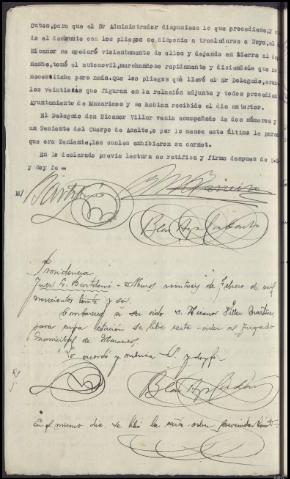 gatos, para que el Sr Administrador dispusiese lo que procediese,
de el declarante con los pliegos se disponía a trasladarse a Noya, el
Nicanor se apoderó violentamente de ellos y dejando en tierra al de
nante, tomó el automovil, marchandose rapidamente y diciendole que no
necesitaba para nada. Que los pliegos que llevó el Sr Delegado, eran
los veintiseis que figuran en la relación adjunta y todos procedian
Ayuntamiento de Mazaricos y se habian recibido el dia anterior.
El Delegado don Nicanor Villar venia acompañado de dos números y
un Teniente del Cuerpo de Asalto, o por lo menos este último le
que era Teniente, los cuales exhibieron su carnet.
En lo declarado previa lectura se ratifica y firma despues de
y doy fe =
Providencia
Juez Sr. Bartolomé - Muros, veintiseis de Febrero de mil
novecientos treinta y seis.
a ser oido D. Nicanor Villar
para cuya citación se libre carta-orden al Juzgado
Municipal de Mazaricos.
Lo acordó y rubrica S.S. y doy fe.
En el mismo dia se libró la carta orden